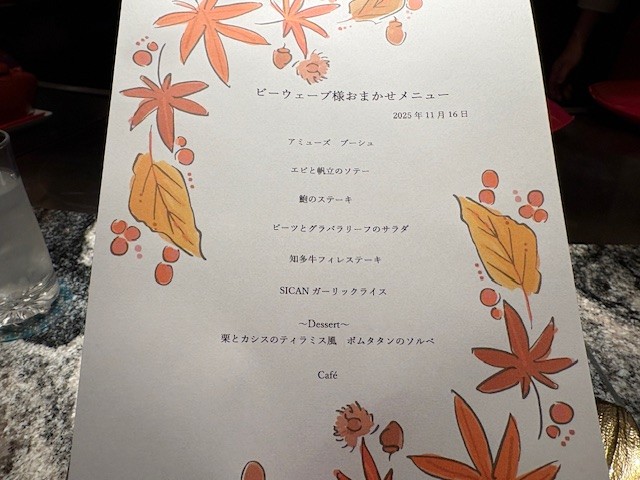 ビーウェーブ様おまかせメニュー
2025年11月16日
アミューズ　ブーシュ
エビと帆立のソテー
鮑のステーキ
ビーツとグラパラリーフのサラダ
知多牛フィレステーキ
SICANガーリックライス
～Dessert～
栗とカシスのティラミス風　ポムタタンのソルベ
Café